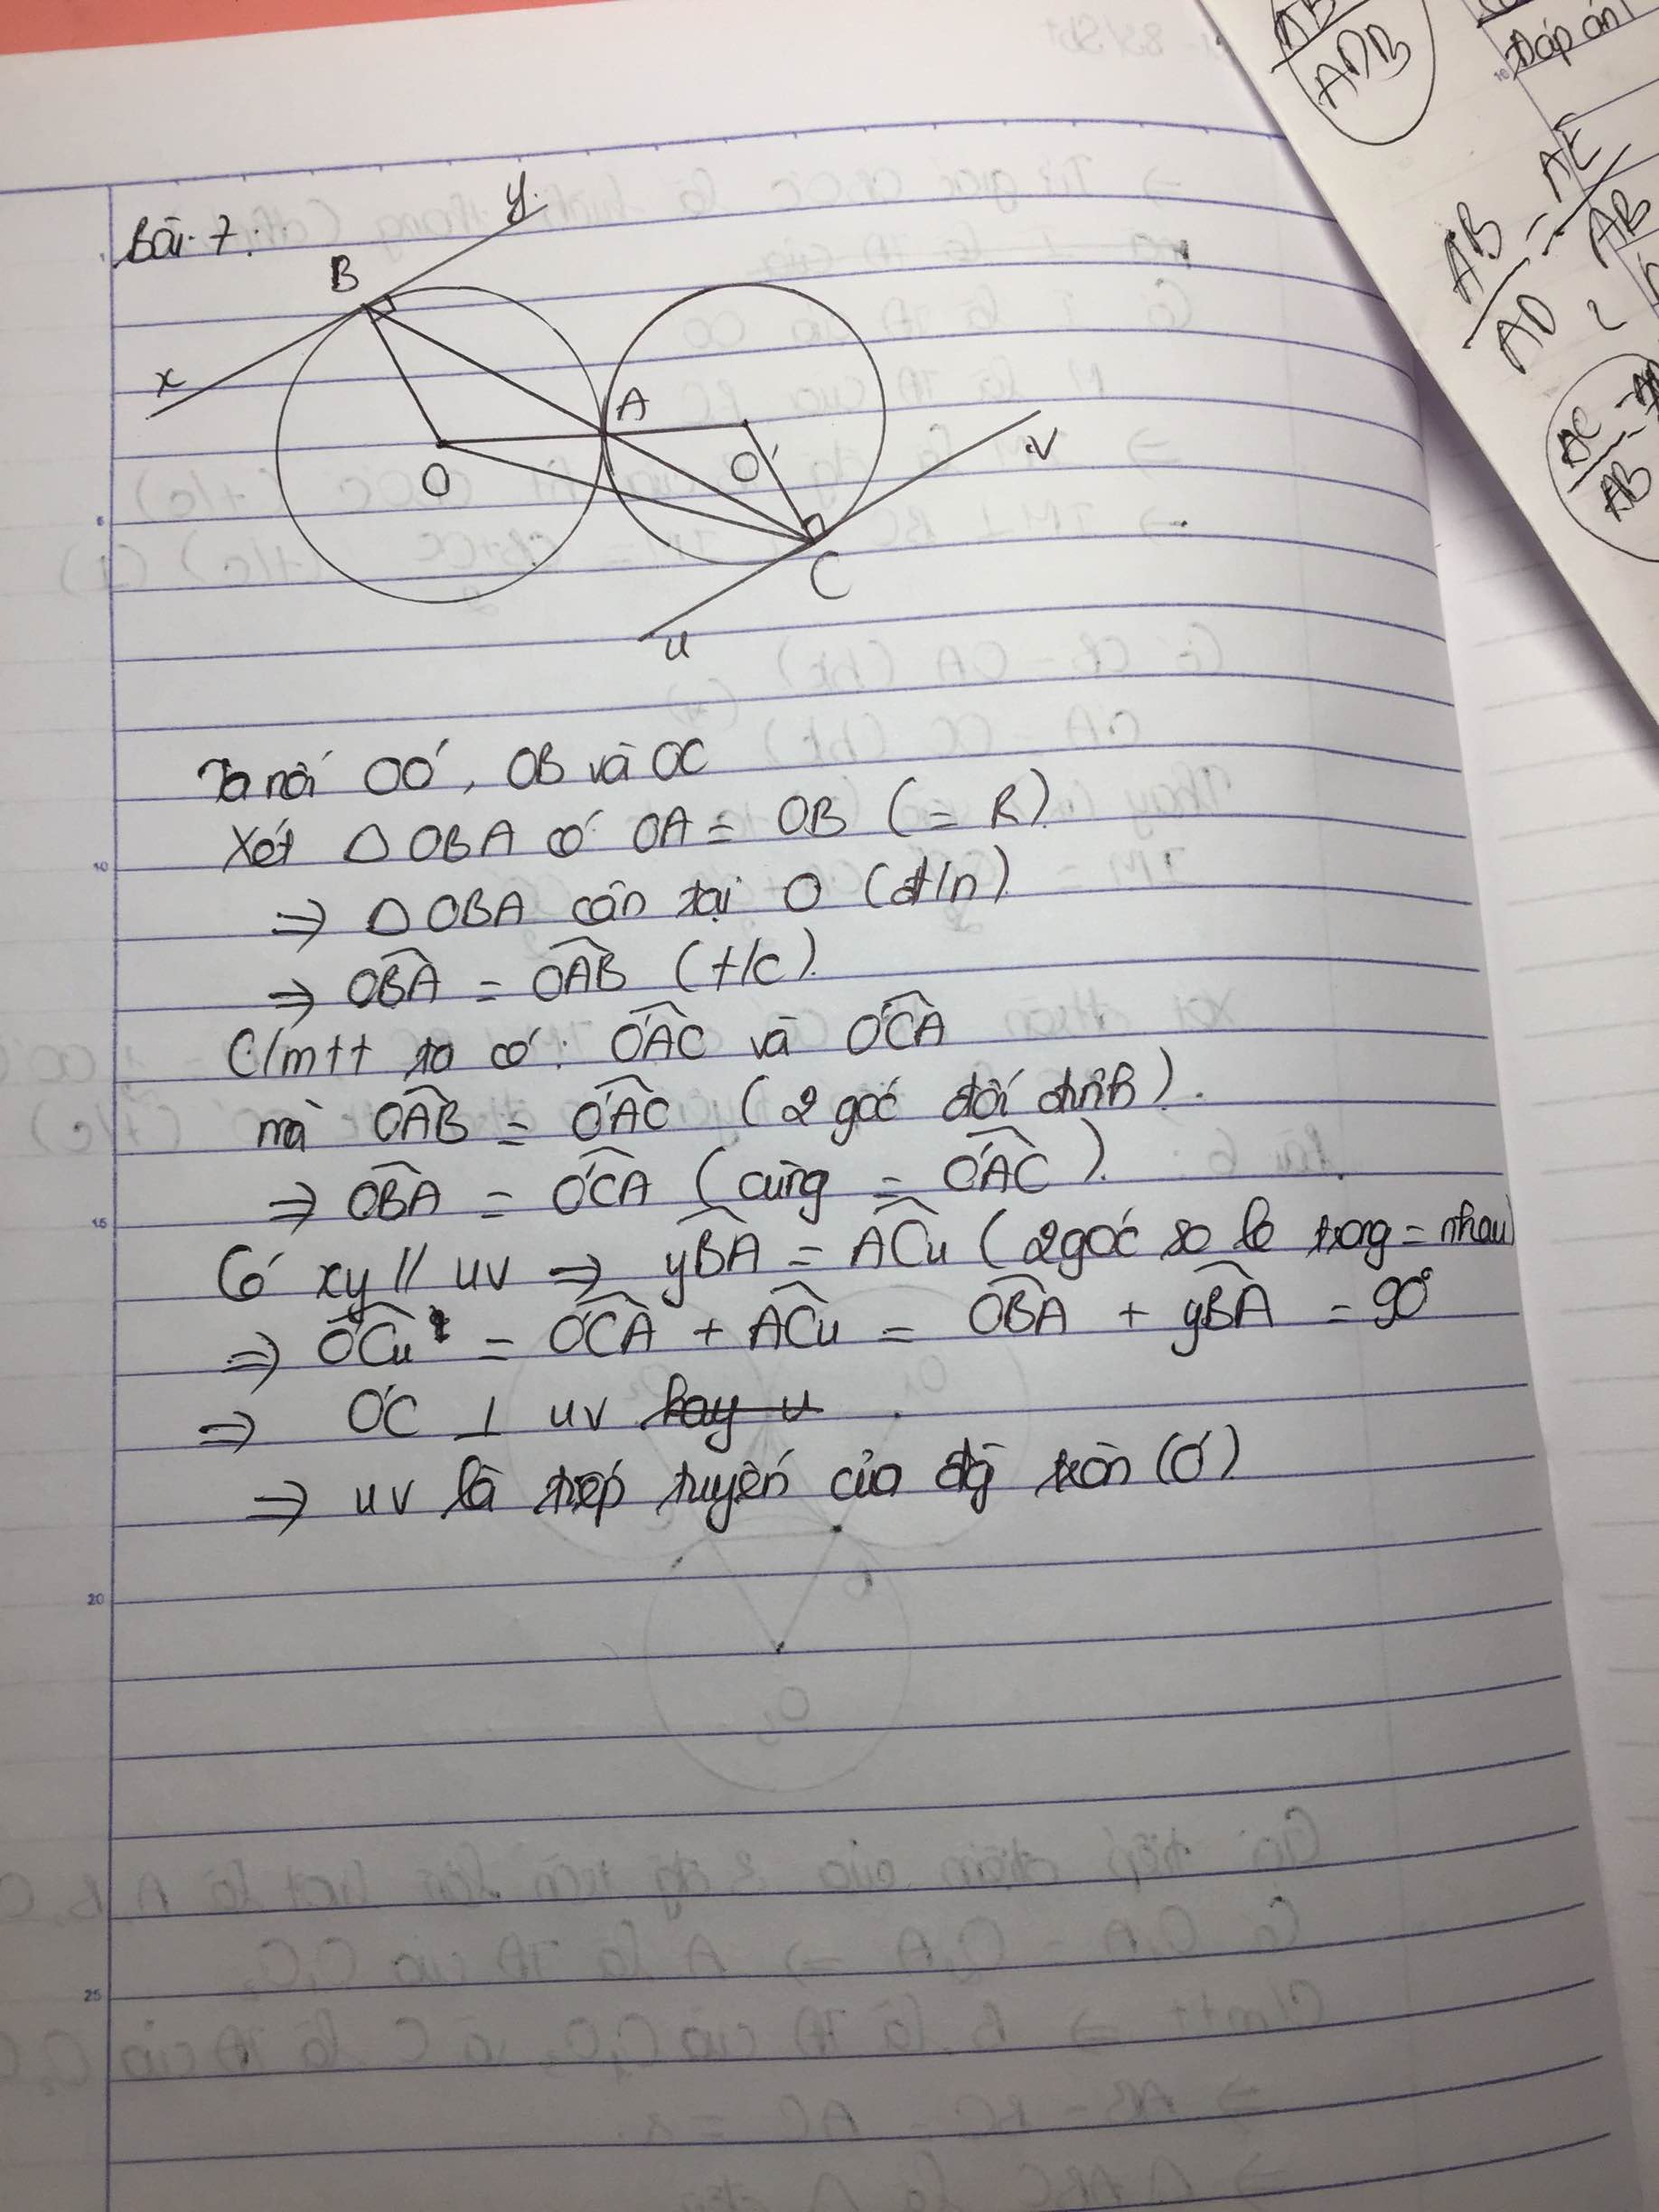 Bài 7:
y
B
x
A
O
O'
v
C
u
Ta nối OO', OB và OC
Xét △OBA có OA = OB (= R)
⇒ △OBA cân tại O (đ/n)
⇒ OBA = OAB (t/c).
C/mtt ta có: O'AC và O'CA
mà OAB = O'AC (2 góc đối đỉnh).
⇒ OBA = O'CA (cùng = O'AC).
Có xy // uv ⇒ yBA = ACu (2 góc so le trong = nhau)
⇒ O'Cu = O'CA + ACu = OBA + yBA = 90°
⇒ O'C ⊥ uv hay u
⇒ uv là tiếp tuyến của đg tròn (O')
AB
ADB
Đáp án
AB/AD = AE/AB
AC/AB =